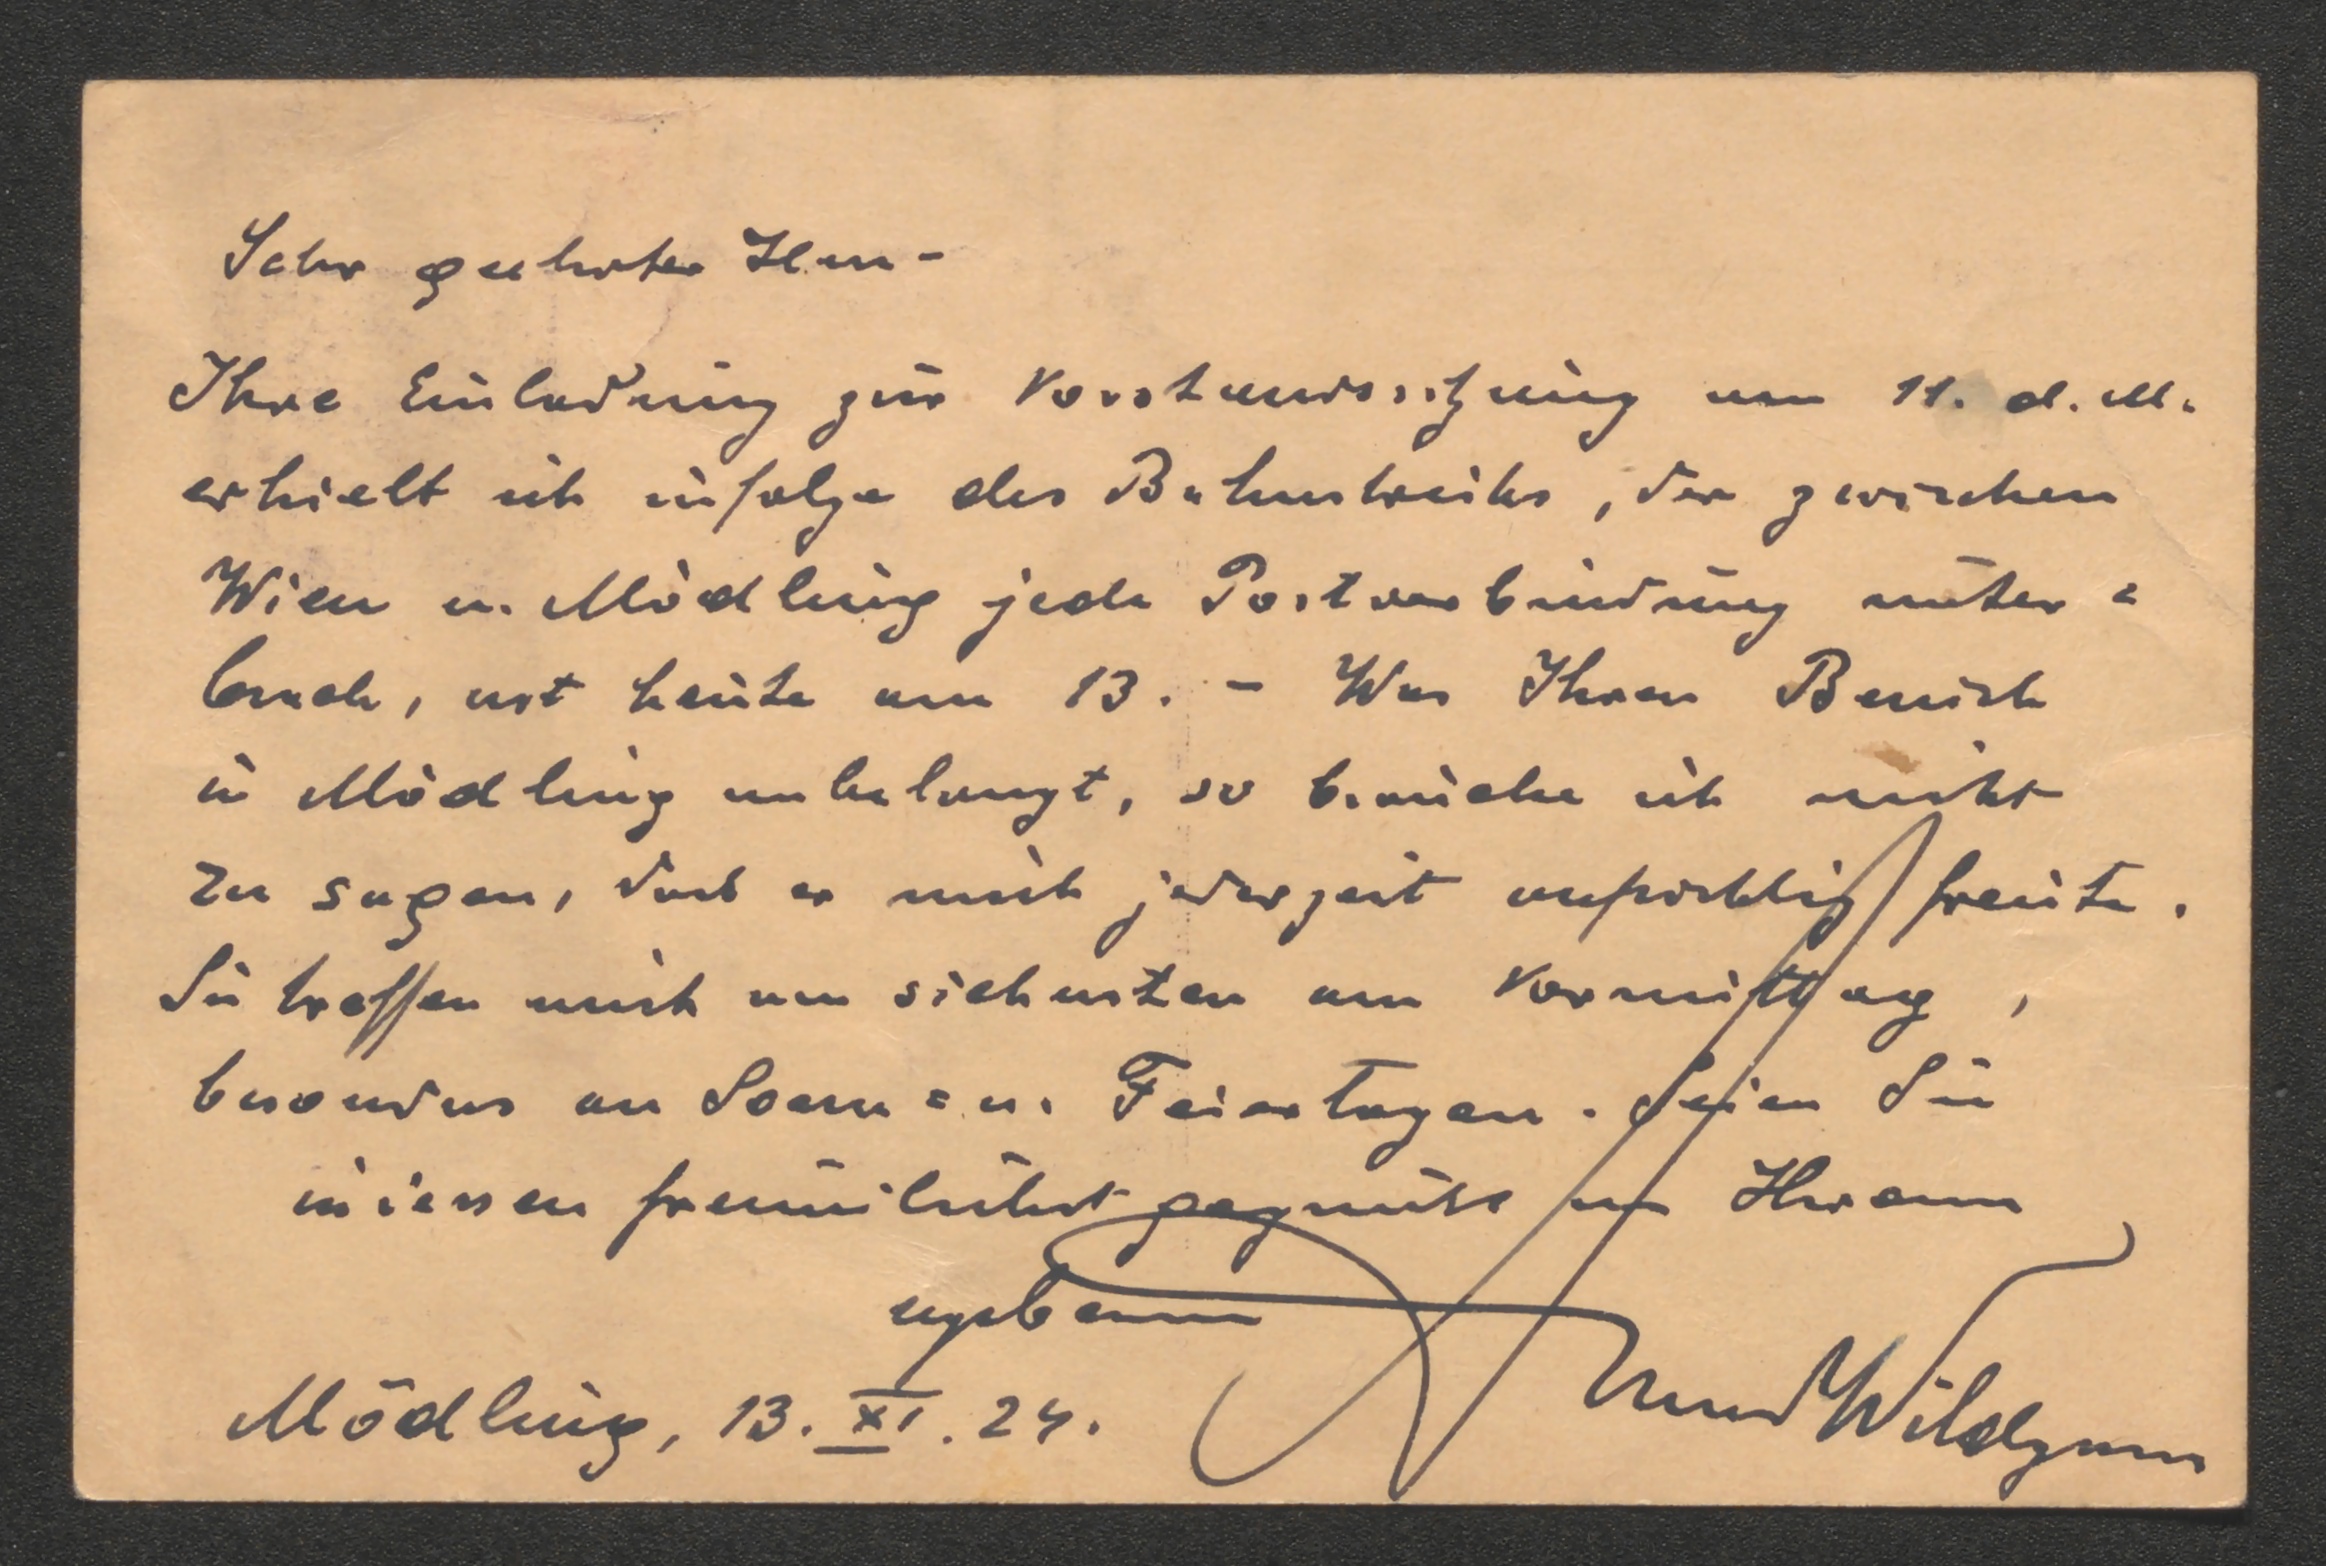 Sehr geehrter Herr –
Ihre Einladung zur Vorstandssitzung am 11. d. M.
erhielt ich infolge des Bahnstreiks, der zwischen
Wien u. Mödling jede Postverbindung unter=
brach, erst heute am 13. – Was Ihren Besuch
in Mödling anbelangt, so brauche ich nicht
zu sagen, daß er mich jederzeit aufrichtig freute.
Sie treffen mich am sichersten am Vormittag,
besonders an Sonn= u. Feiertagen. Seien Sie
indessen freundlichst gegrüßt von Ihrem
ergebenen
Mödling, 13. XI. 24.
Anton Wildgans